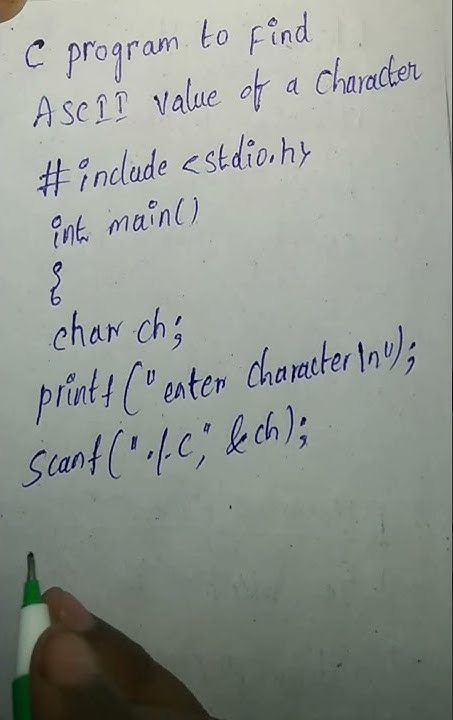 C program to Find
ASCII value of a Character
#include <stdio.h>
int main()
{
char ch;
printf("enter Character\n");
Scanf("%C", &ch);